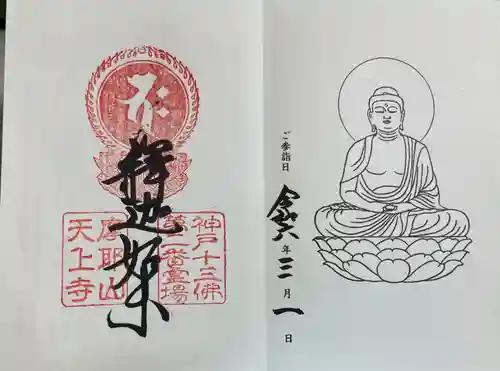 ご参詣日
令六年三月一日
釋迦如来
神戸十三佛
第二番霊場
摩耶山
天上寺